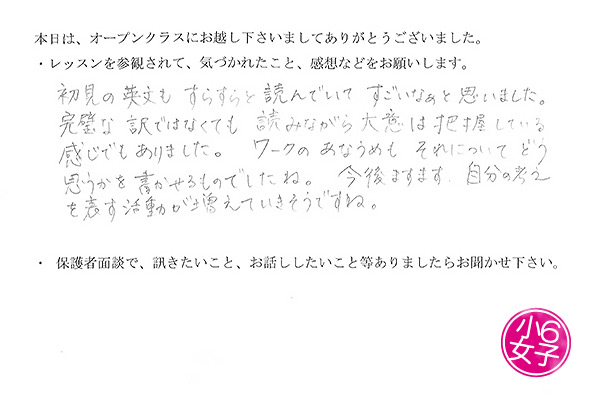 本日は、オープンクラスにお越し下さいましてありがとうございました。
・レッスンを参観されて、気づかれたこと、感想などをお願いします。
初見の英文も すらすらと読んでいて すごいなぁと思いました。
完璧な訳ではなくても 読みながら大意は把握している
感じでもありました。 ワークの あなうめも それについて どう
思うかを書かせるものでしたね。 今後ますます、自分の考え
を表す活動が増えていきそうですね。
・ 保護者面談で、訊きたいこと、お話ししたいこと等ありましたらお聞かせ下さい。
小6
女子